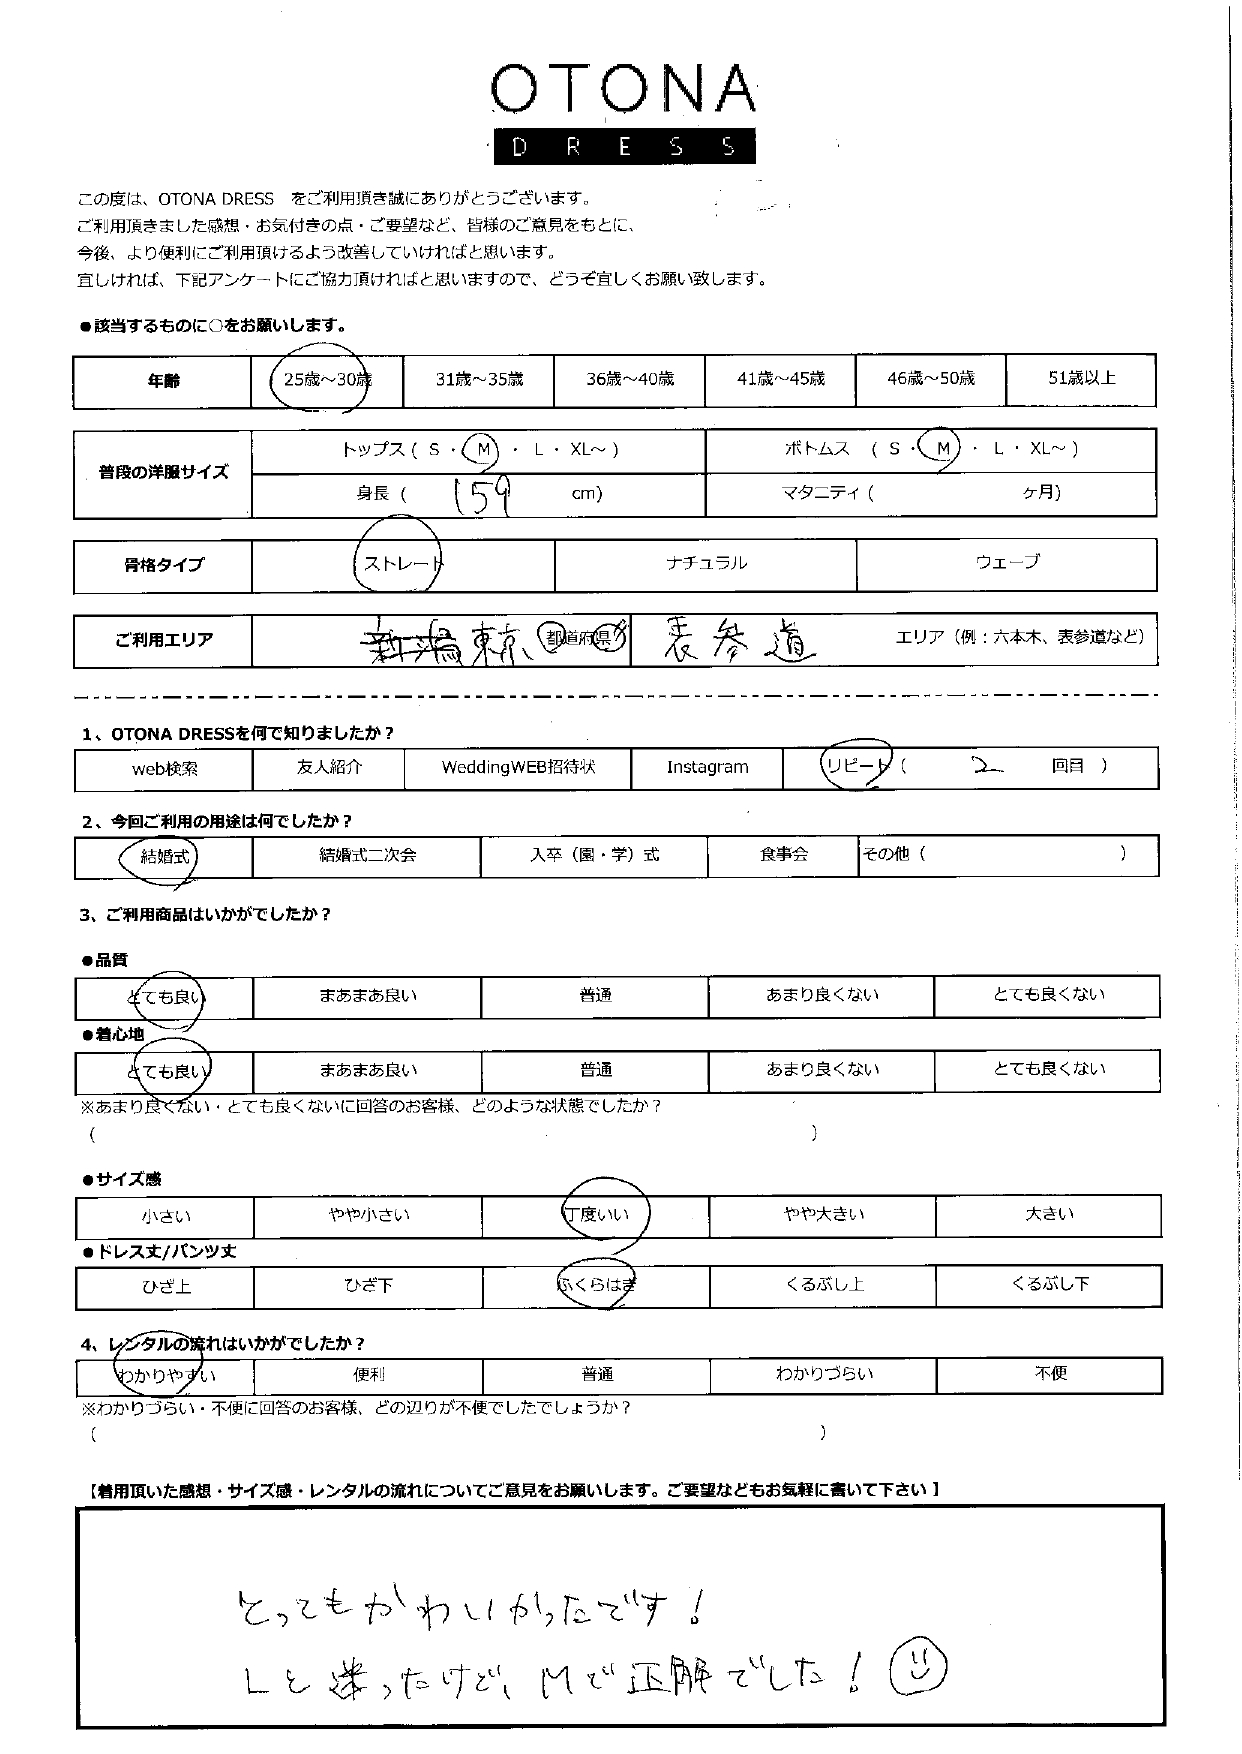 OTONA
DRESS
この度は、OTONA DRESS　をご利用頂き誠にありがとうございます。
ご利用頂きました感想・お気付きの点・ご要望など、皆様のご意見をもとに、
今後、より便利にご利用頂けるよう改善していければと思います。
宜しければ、下記アンケートにご協力頂ければと思いますので、どうぞ宜しくお願い致します。
●該当するものに○をお願いします。
年齢 25歳～30歳 31歳～35歳 36歳～40歳 41歳～45歳 46歳～50歳 51歳以上
普段の洋服サイズ トップス ( S ・ M ・ L ・ XL～ ) ボトムス ( S ・ M ・ L ・ XL～ )
身長 ( 159 cm) マタニティ ( ケ月)
骨格タイプ ストレート ナチュラル ウェーブ
ご利用エリア 新潟 東京 都道府県 表参道 エリア（例：六本木、表参道など）
1、OTONA DRESSを何で知りましたか？
web検索 友人紹介 WeddingWEB招待状 Instagram リピート ( 2 回目 )
2、今回ご利用の用途は何でしたか？
結婚式 結婚式二次会 入卒（園・学）式 食事会 その他 ( )
3、ご利用商品はいかがでしたか？
●品質
とても良い まあまあ良い 普通 あまり良くない とても良くない
●着心地
とても良い まあまあ良い 普通 あまり良くない とても良くない
※あまり良くない・とても良くないに回答のお客様、どのような状態でしたか？
( )
●サイズ感
小さい やや小さい 丁度いい やや大きい 大きい
●ドレス丈/パンツ丈
ひざ上 ひざ下 ふくらはぎ くるぶし上 くるぶし下
4、レンタルの流れはいかがでしたか？
わかりやすい 便利 普通 わかりづらい 不便
※わかりづらい・不便に回答のお客様、どの辺りが不便でしたでしょうか？
( )
【着用頂いた感想・サイズ感・レンタルの流れについてご意見をお願いします。ご要望などもお気軽に書いて下さい】
とってもかわいかったです！
Lと迷ったけど、Mで正解でした！